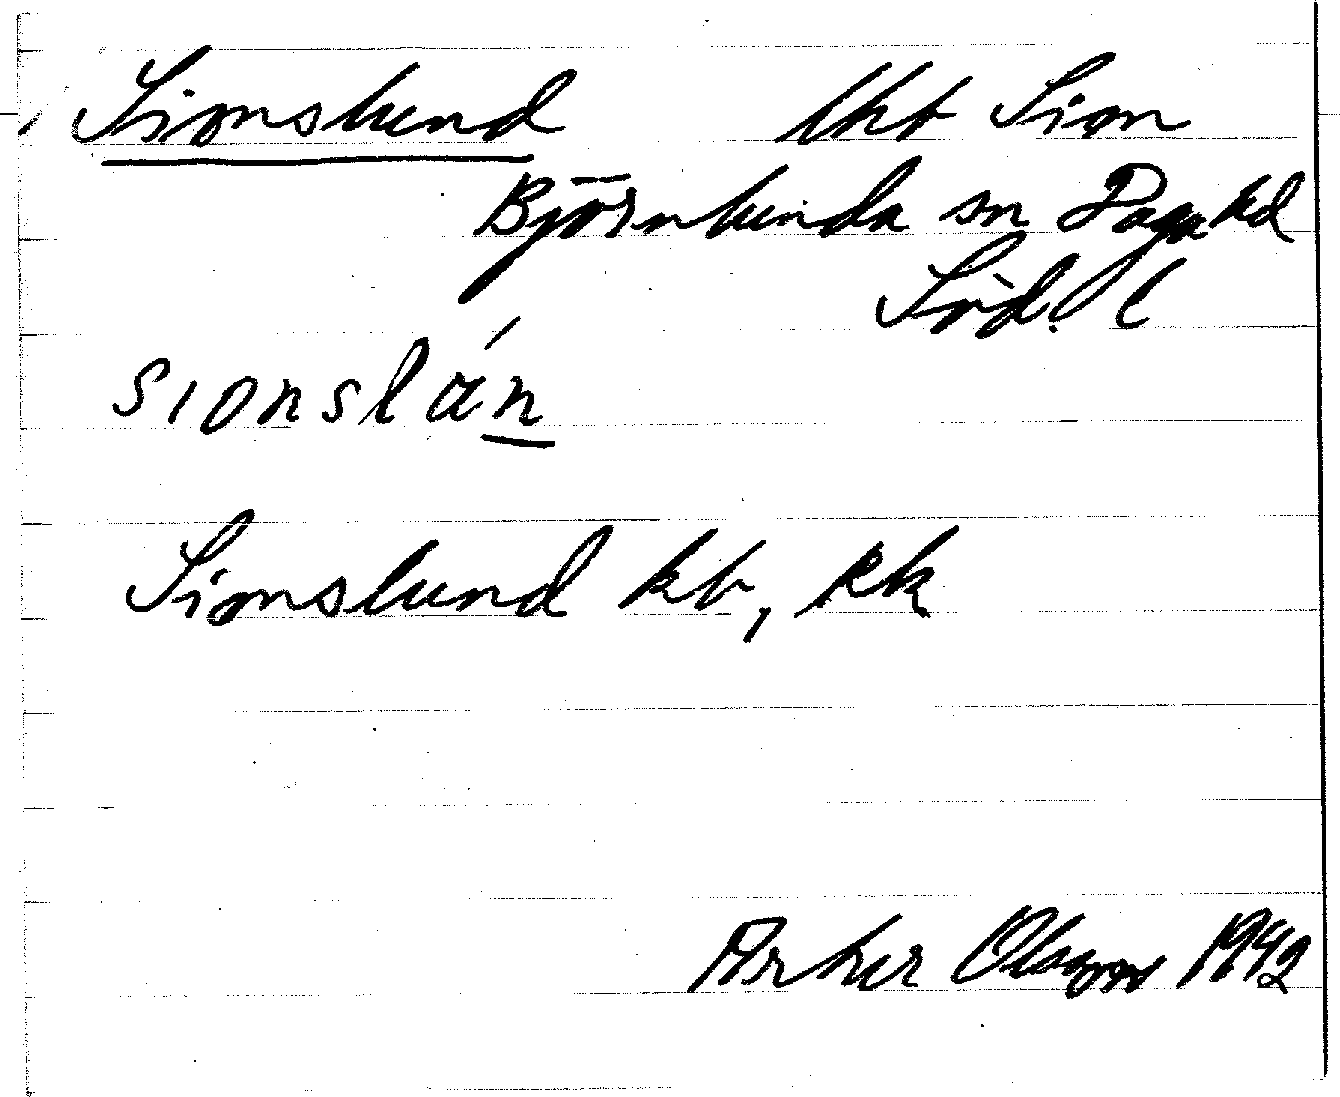 Sionslund lht Sion
Björnlunda sn Daga hd
Söd. l
sionslán
Sionslund kb, kk
Arthur Olsson 1942